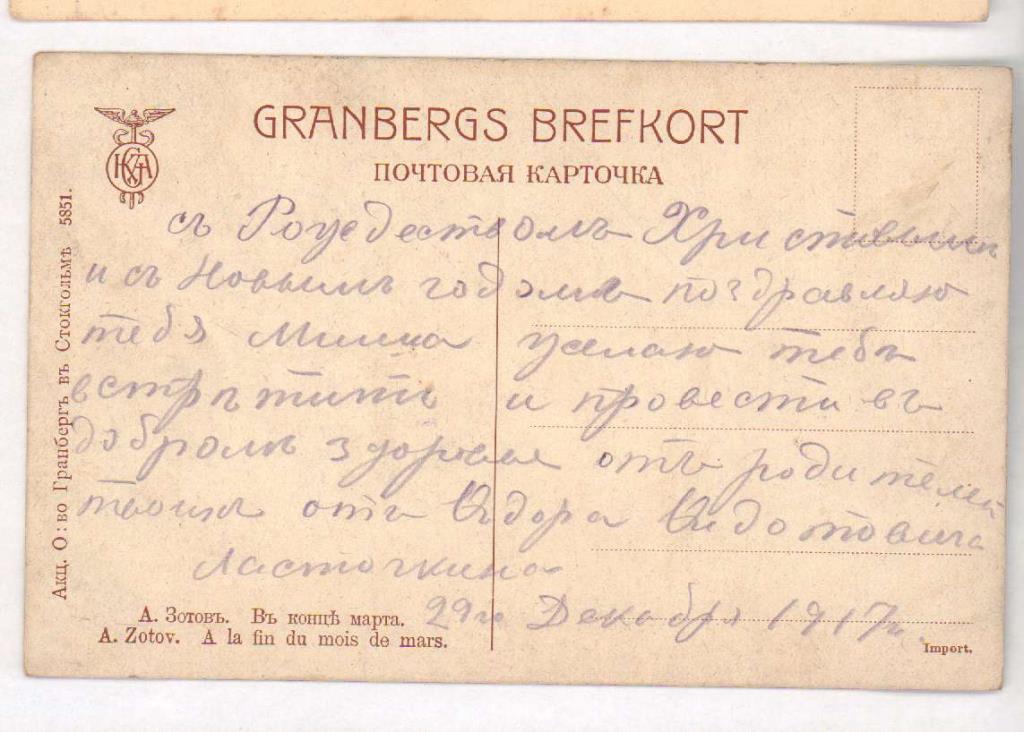 GRANBERGS BREFKORT
ПОЧТОВАЯ КАРТОЧКА
съ Рождествомъ Христовымъ
и съ Новымъ годомъ поздравляю
тебя желаю тебѣ
встрѣтить и провести въ
добромъ здоровье отъ родителей
твоихъ отъ
Ласточкина
29го Декабря 1917г.
А. Зотовъ. Въ концѣ марта.
A. Zotov. A la fin du mois de mars.
Import.
Акц. О:во Гранбергъ въ Стокгольмѣ 5851.